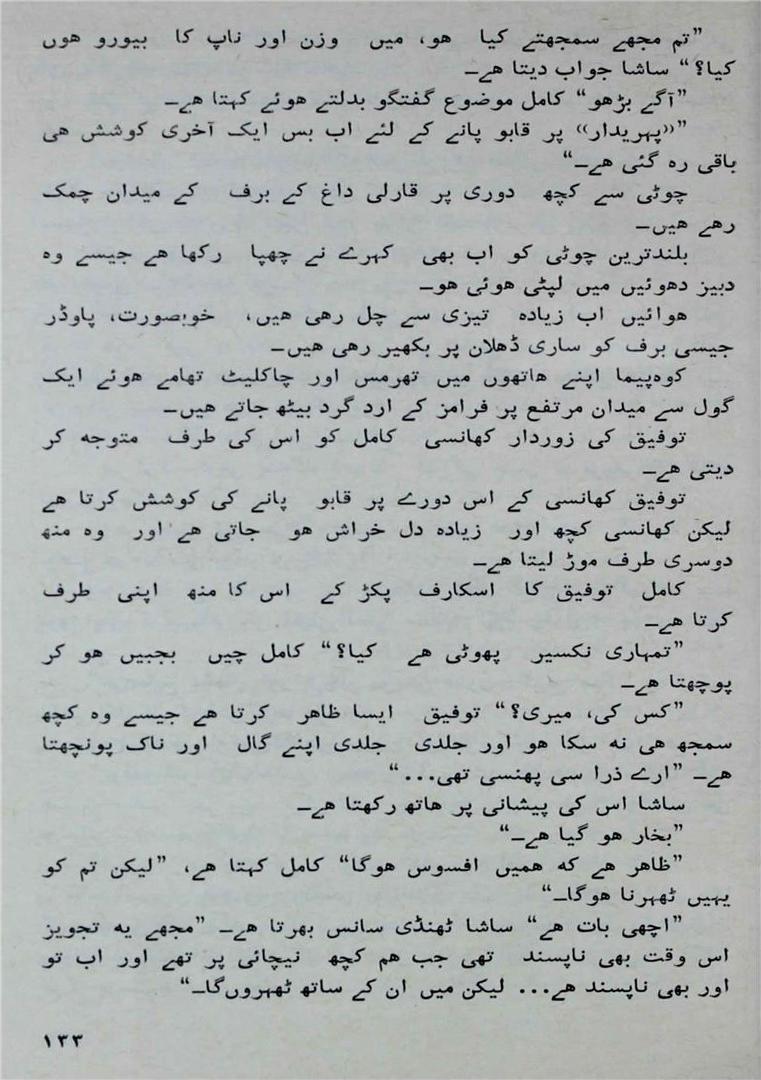 ”تم مجھے سمجھتے کیا ھو، میں وزن اور ناپ کا بیورو ھوں
کیا؟“ ساشا جواب دیتا ھے۔
”آگے بڑھو“ کامل موضوع گفتگو بدلتے ھوئے کہتا ھے۔
”«پہریدار» پر قابو پانے کے لئے اب بس ایک آخری کوشش ھی
باقی رہ گئی ھے۔“
چوٹی سے کچھ دوری پر قارلی داغ کے برف کے میدان چمک
رھے ھیں۔
بلندترین چوٹی کو اب بھی کہرے نے چھپا رکھا ھے جیسے وہ
دبیز دھوئیں میں لپٹی ھوئی ھو۔
ھوائیں اب زیادہ تیزی سے چل رھی ھیں، خوبصورت، پاوڈر
جیسی برف کو ساری ڈھلان پر بکھیر رھی ھیں۔
کوہپیما اپنے ھاتھوں میں تھرمس اور چاکلیٹ تھامے ھوئے ایک
گول سے میدان مرتفع پر فرامز کے ارد گرد بیٹھ جاتے ھیں۔
توفیق کی زوردار کھانسی کامل کو اس کی طرف متوجہ کر
دیتی ھے۔
توفیق کھانسی کے اس دورے پر قابو پانے کی کوشش کرتا ھے
لیکن کھانسی کچھ اور زیادہ دل خراش ھو جاتی ھے اور وہ منھ
دوسری طرف موڑ لیتا ھے۔
کامل توفیق کا اسکارف پکڑ کے اس کا منھ اپنی طرف
کرتا ھے۔
”تمہاری نکسیر پھوٹی ھے کیا؟“ کامل چیں بجبیں ھو کر
پوچھتا ھے۔
”کس کی، میری؟“ توفیق ایسا ظاھر کرتا ھے جیسے وہ کچھ
سمجھ ھی نہ سکا ھو اور جلدی جلدی اپنے گال اور ناک پونچھتا
ھے۔ ”ارے ذرا سی پھنسی تھی...“
ساشا اس کی پیشانی پر ھاتھ رکھتا ھے۔
”بخار ھو گیا ھے۔“
”ظاھر ھے کہ ھمیں افسوس ھوگا“ کامل کہتا ھے، ”لیکن تم کو
یہیں ٹھہرنا ھوگا۔“
”اچھی بات ھے“ ساشا ٹھنڈی سانس بھرتا ھے۔ ”مجھے یہ تجویز
اس وقت بھی ناپسند تھی جب ھم کچھ نیچائی پر تھے اور اب تو
اور بھی ناپسند ھے... لیکن میں ان کے ساتھ ٹھہروںگا۔“
۱۳۳